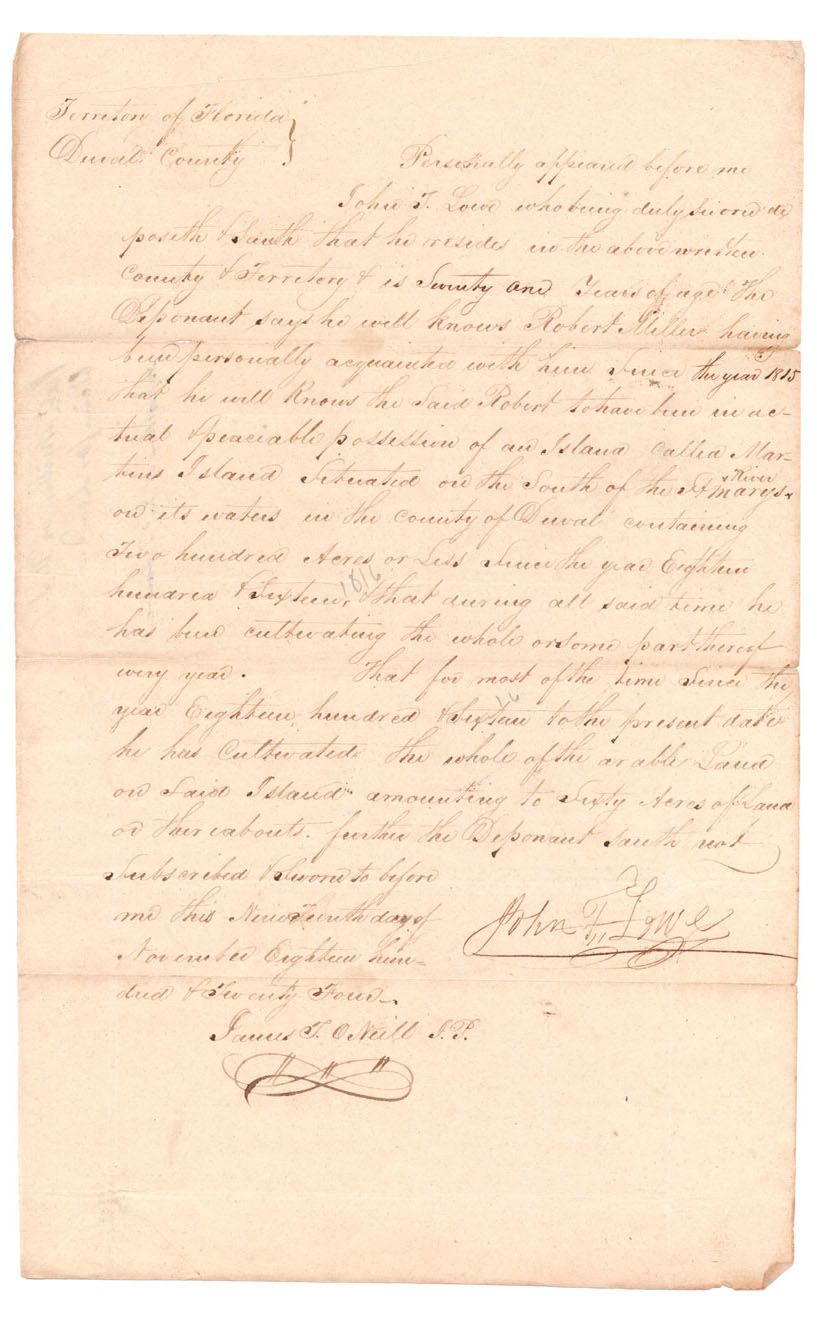 Territory of Florida
Duval County
Personally appeared before me
John T. Lowe who being duly Sworn de
poseth & Saith that he resides in the above written
County & Territory & is Twenty one Years of age The
Deponant says he well knows Robert Miller having
been personally acquainted with him Since the year 1815
that he well Knows the Said Robert to have been in ac-
tual & peaciable possession of an Island Called Mar-
tins Island Situated on the South of the St marys River
on its waters in the County of Duval containing
Two hundred Acres or Less Since the year Eighteen
hundred & Sixteen, 1816 & that during all said time he
has been cultivating the whole or some part thereof
every year. That for most of the time Since the
year Eighteen hundred & Sixteen 16 to the present date
he has Cultivated the whole of the arable Land
on Said Island amounting to Sixty Acres of Land
or thereabouts. further the Deponant saith not
Subscribed & Sworn to before
me this day of
November Eighteen hun-
dred & Twenty Four
John T. Lowe
James T. O Neill J.P.